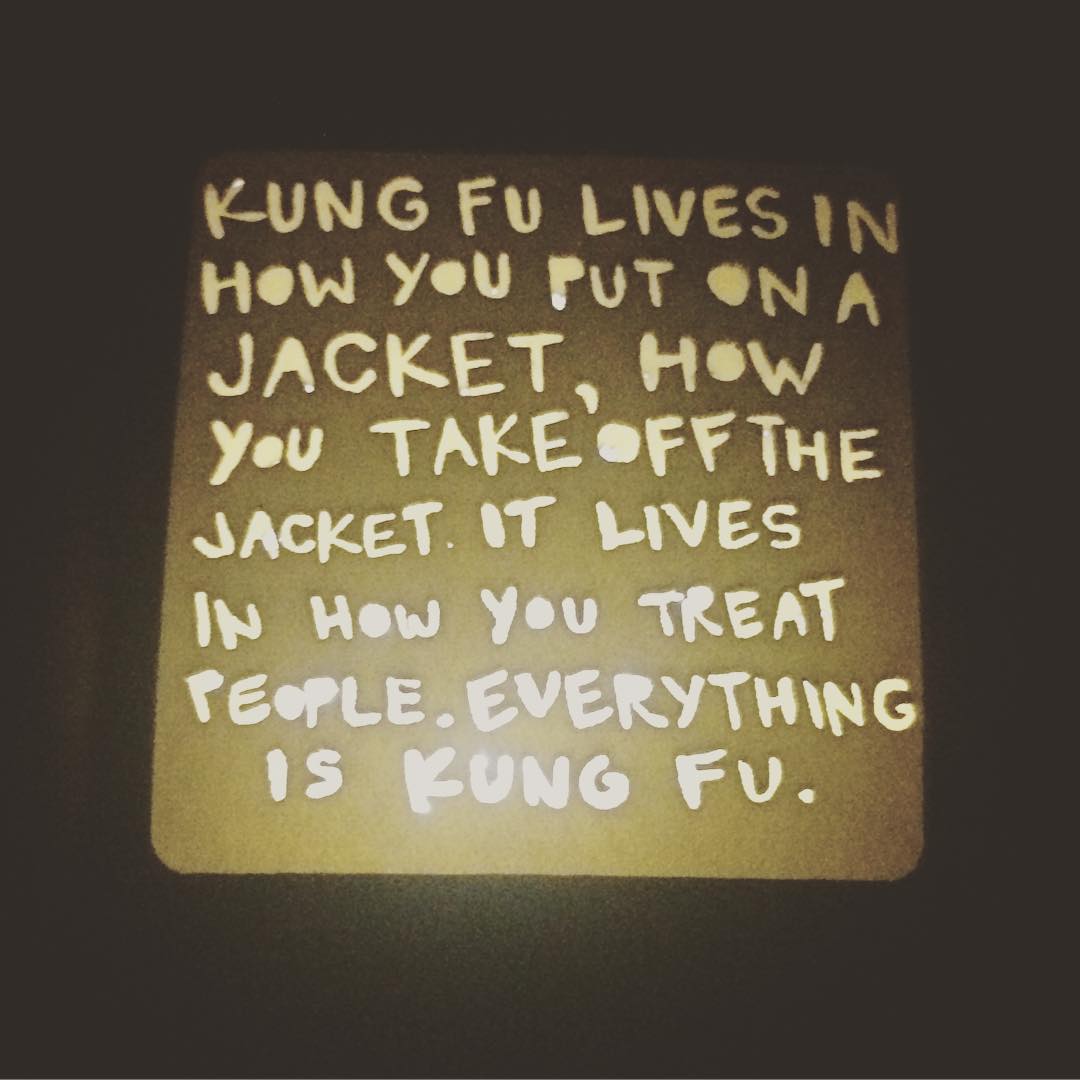 KUNG FU LIVES IN
HOW YOU PUT ON A
JACKET, HOW
YOU TAKE OFF THE
JACKET. IT LIVES
IN HOW YOU TREAT
PEOPLE. EVERYTHING
IS KUNG FU.